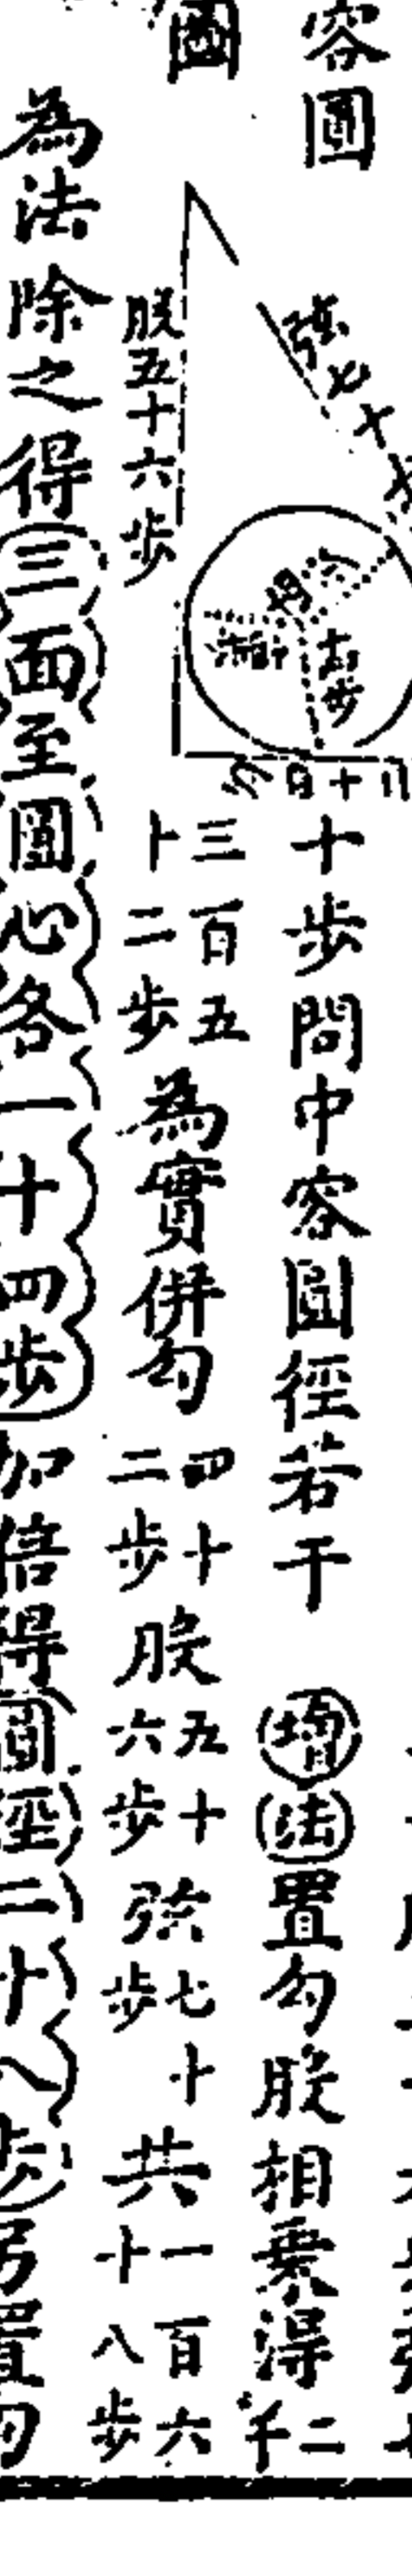 容圓
圖
弦七十步
股五十六步
十步問中容圓徑若干 增法置勾股相乘得二千
三百五十二步為實併勾四十二步股五十六步弦七十步共一百六十八步
為法除之得三面至圓心各一十四步加倍得圓徑二十八步另置勾